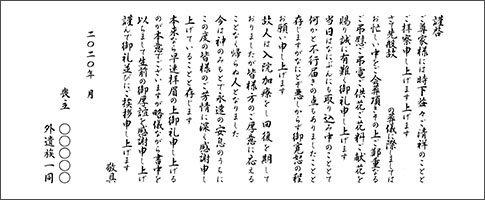 謹啓
ご尊家様には時下益々ご清祥のことと
ご拝察申し上げます上げます
さて先般故　　　の葬儀に際しましては
お忙しい中をご会葬頂きその上ご鄭重なる
ご弔慰ご弔電ご供花ご花料ご献花を
賜り誠に有難く御礼申し上げます
当日はなにぶんにも取り込み中のこととて
何かと不行届きの点もありましたことと
存じますがなにとぞ悪しからず御寛恕の程
お願い申し上げます
故人は入院加療をし回復を期して
おりましたが皆様方のご厚志に応える
ことなく帰らぬ人となりました
今は神のみもとで永遠の安息のうちに
この度の皆様のご芳情に深く感謝申し
上げていることと存じます
本来なら早速拝眉の上御礼申し上げる
のが本意でございますが略儀ながら書中を
以ちまして生前の御厚誼を感謝申し上げ
謹んで御礼並びにご挨拶申し上げます
敬具
二〇二〇年　月
喪主　〇〇〇〇
外遺族一同